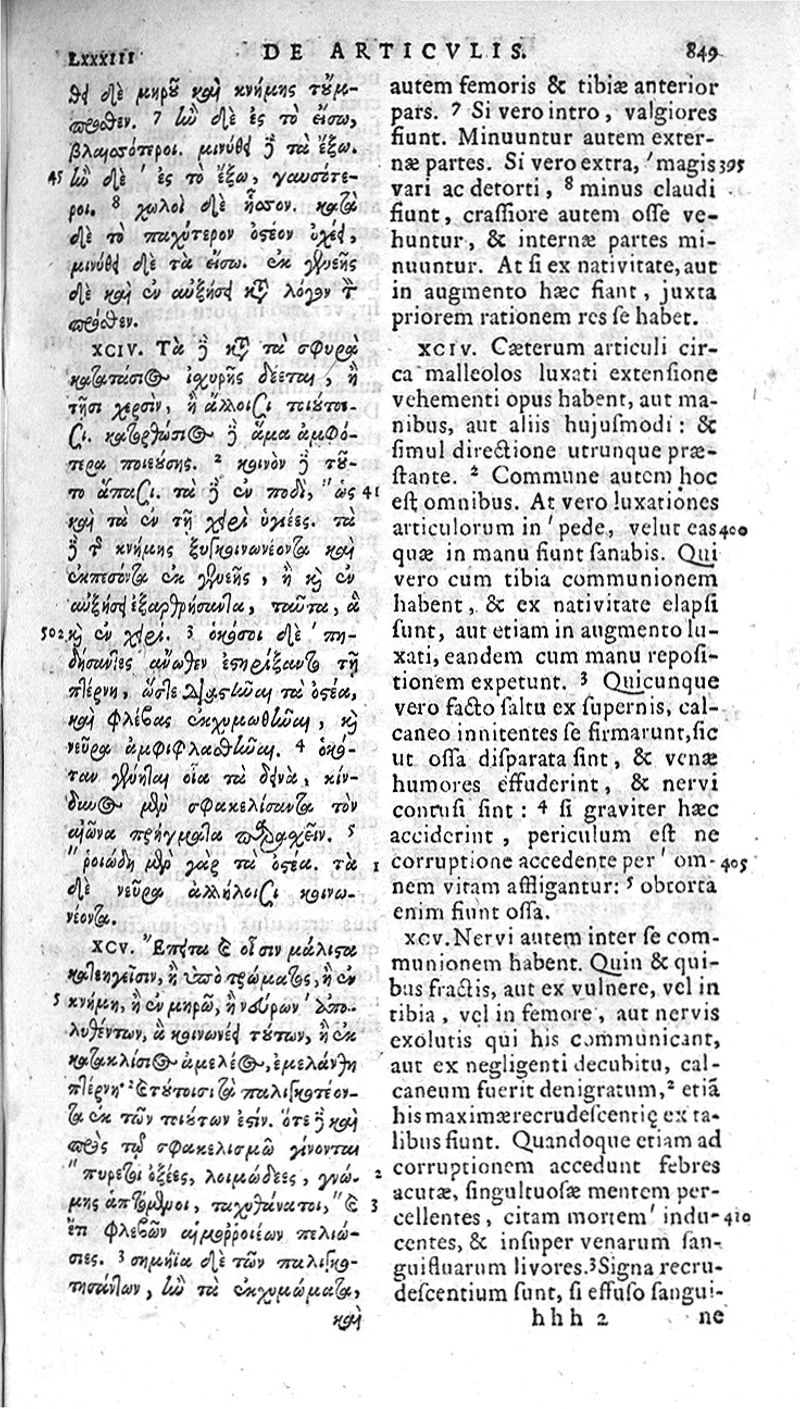 LXXXIII DE ARTICVLIS. 849
θει δὲ μηροῦ καὶ κνήμης τοὔμ-
προσθεν. 7 ἢν δὲ ἐς τὸ εἴσω,
βλαισότεροι. μινύθει δὲ τὰ ἔξω.
45 ἢν δὲ ' ἐς τὸ ἔξω, γαυσότε-
ροι. 8 χωλοὶ δὲ ἧσσον. κατὰ
δὲ τὸ παχύτερον ὀστέον ὀχέει,
μινύθει δὲ τὰ εἴσω. ἐκ γενεῆς
δὲ καὶ ἐν αὐξήσει κατὰ λόγον τὸν
πρόσθεν.
XCIV. Τὰ δὲ κατὰ τὰ σφυρὰ
κατατάσιος ἰσχυρῆς δέεται, ἢ
τῇσι χερσὶν, ἢ ἄλλοισι τοιούτοι-
σι. κατορθώσιος δὲ ἅμα ἀμφό-
τερα ποιεύσης. 2 κοινὸν δὲ τοῦ-
το ἅπασι. τὰ δὲ ἐν ποδὶ, "ὡς 41
καὶ τὰ ἐν τῇ χειρὶ ὑγιέες. τὰ
δὲ τῆς κνήμης ξυγκοινωνέοντα καὶ
ἐκπεσόντα ἐκ γενεῆς, ἢ καὶ ἐν
αὐξήσει ἐξαρθρήσαντα, ταῦτα, ἃ
502 καὶ ἐν χειρί. 3 ὁκόσοι δὲ ' πη-
δήσαντες ἄνωθεν ἐστηρίξαντο τῇ
πτέρνῃ, ὥστε διαστῆναι τὰ ὀστέα,
καὶ φλέβας ἐκχυμωθῆναι, καὶ
νεῦρα ἀμφιφλασθῆναι. 4 ὁκό-
ταν γένηται οἷα τὰ δεινὰ, κίν-
δυνος μὲν σφακελίσαντα τὸν
αἰῶνα πρήγματα παρασχεῖν. 5
"ῥοιώδη μὲν γὰρ τὰ ὀστέα. τὰ 1
δὲ νεῦρα ἀλλήλοισι κοινω-
νέοντα.
XCV. "Επειτα καὶ οἷσιν μάλιστα
κατεηγεῖσιν, ἢ ὑπὸ τρώματος, ἢ ἐν
5 κνήμῃ, ἢ ἐν μηρῷ, ἢ νεύρων ' ἀπο-
λυθέντων, ἃ κοινωνέει τούτων, ἢ ἐκ
κατακλίσιος ἀμελέος, ἐμελάνθη
πτέρνη· 2 καὶ τούτοισι τὰ παλιγκοτέον-
τα ἐκ τῶν τοιούτων ἐστίν. ὅτε δὲ καὶ
πρὸς τῷ σφακελισμῷ γίνονται
"πυρετοὶ ὀξέες, λοιμώδεες, γνώ- 2
μης ἁπτόμενοι, ταχυθάνατοι, "καὶ 3
ἔτι φλεβῶν αἱμορροιέων πελιώ-
σιες. 3 σημήϊα δὲ τῶν παλιγκο-
τησάντων, ἢν τὰ ἐκχυμώματα,
καὶ
autem femoris & tibiæ anterior
pars. 7 Si vero intro, valgiores
fiunt. Minuuntur autem exter-
næ partes. Si vero extra, ' magis 395
vari ac detorti, 8 minus claudi
fiunt, crassiore autem osse ve-
huntur, & internæ partes mi-
nuuntur. At si ex nativitate, aut
in augmento hæc fiant, juxta
priorem rationem res se habet.
XCIV. Cæterum articuli cir-
ca malleolos luxati extensione
vehementi opus habent, aut ma-
nibus, aut aliis hujusmodi: &
simul directione utrunque præ-
stante. 2 Commune autem hoc
est omnibus. At vero luxationes
articulorum in ' pede, velut eas 400
quæ in manu fiunt sanabis. Qui
vero cum tibia communionem
habent, & ex nativitate elapsi
sunt, aut etiam in augmento lu-
xati, eandem cum manu reposi-
tionem expetunt. 3 Quicunque
vero facto saltu ex supernis, cal-
caneo innitentes se firmarunt, sic
ut ossa disparata sint, & venæ
humores effuderint, & nervi
contusi sint: 4 si graviter hæc
acciderint, periculum est ne
corruptione accedente per ' om- 405
nem vitam affligantur: 5 obtorta
enim fiunt ossa.
XCV. Nervi autem inter se com-
munionem habent. Quin & qui-
bus fractis, aut ex vulnere, vel in
tibia, vel in femore, aut nervis
exolutis qui his communicant,
aut ex negligenti decubitu, cal-
caneum fuerit denigratum, 2 etiã
his maximæ recrudescentię ex ta-
libus fiunt. Quandoque etiam ad
corruptionem accedunt febres
acutæ, singultuosæ mentem per-
cellentes, citam mortem ' indu- 410
centes, & insuper venarum san-
guifluarum livores. 3 Signa recru-
descentium sunt, si effuso sangui-
hhh 2 ne